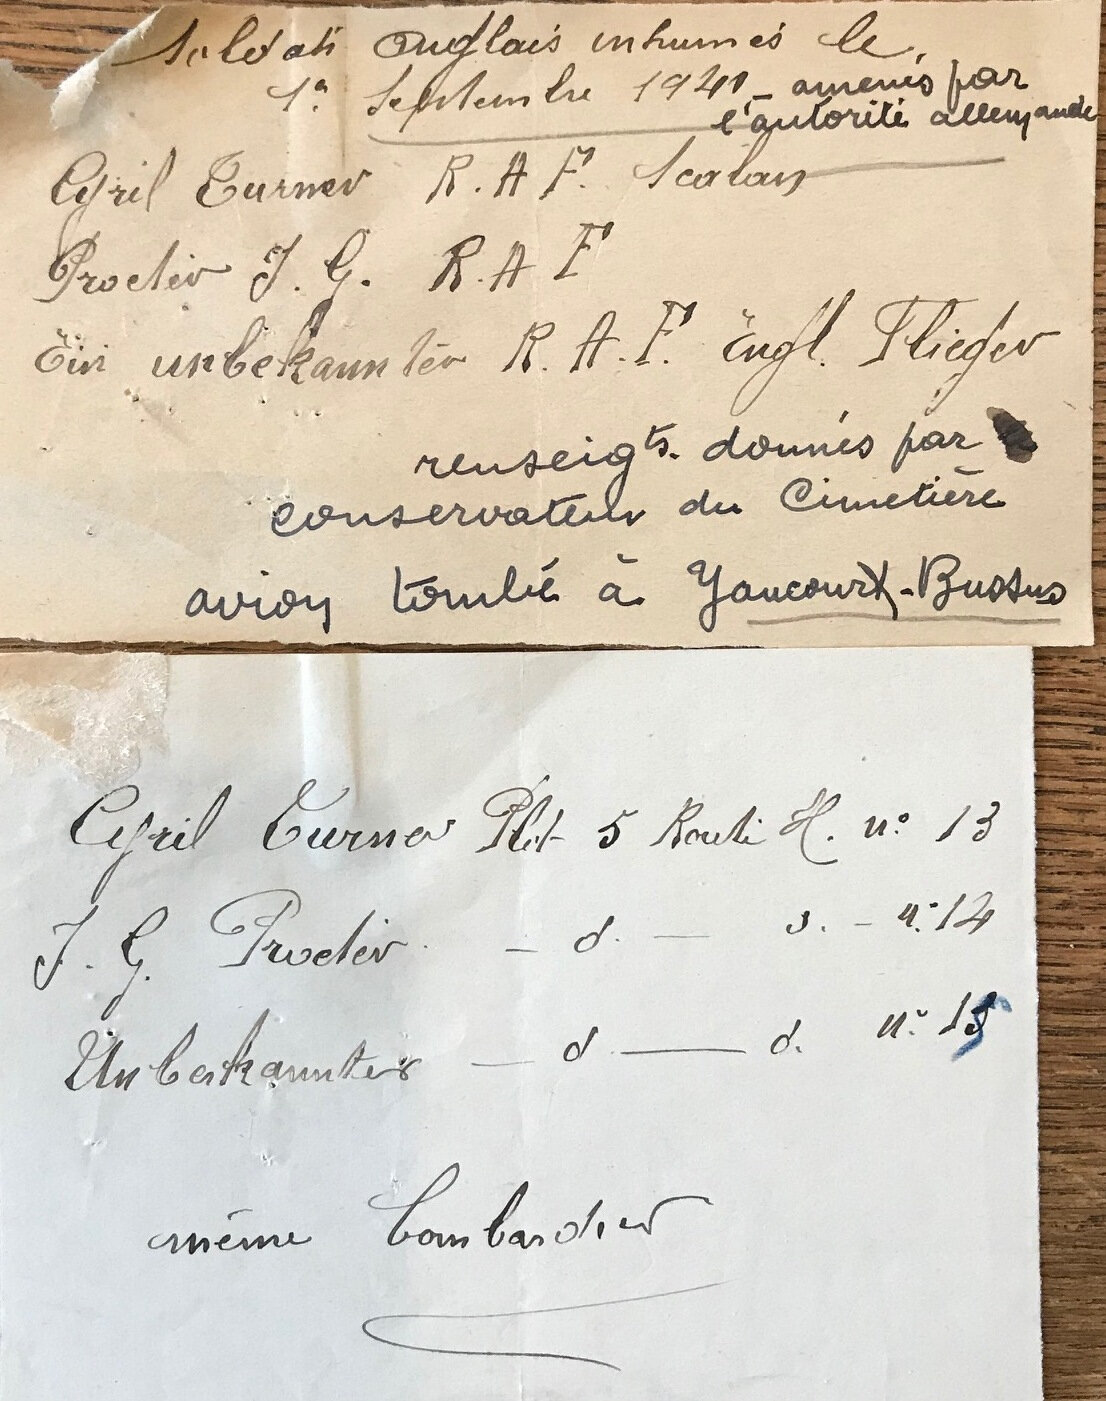 Soldats anglais inhumés le
1er Septembre 1941 - amenés par
l'autorité allemande
Cyril Turner R.A.F.
Procter J. G. R.A.F
Ein unbekannter R.A.F. Engl. Flieger
renseigts. donnés par
conservateur du Cimetière
avion tombé à Yaucourt-Bussus
Cyril Turner Plot 5 Route H. n° 13
J. G. Procter - d. - d. - n° 14
Unbekannter - d. - d. n° 15
même bombardier